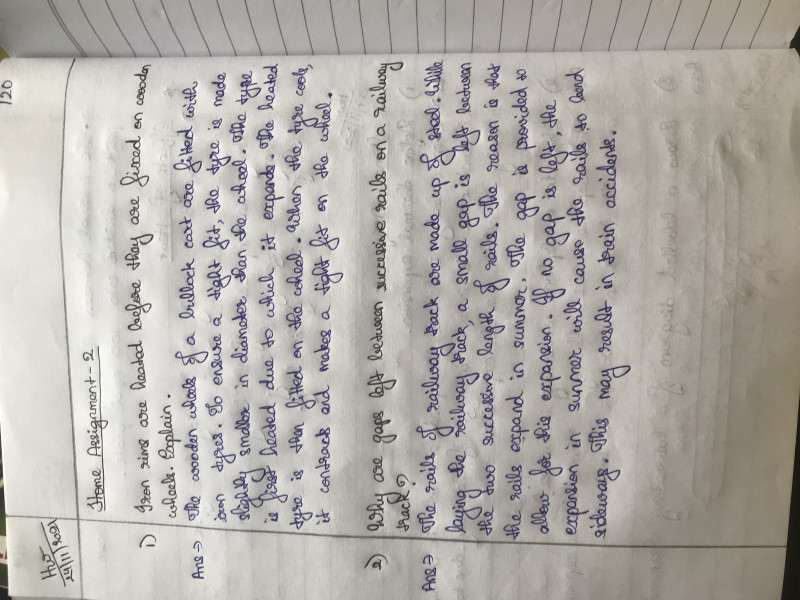 120
HW
24/11/2021
Home Assignment - 2
1) Iron rims are heated before they are fixed on wooden
wheels. Explain.
Ans → The wooden wheels of a bullock cart are fitted with
iron tyres. To ensure a tight fit, the tyre is made
slightly smaller in diameter than the wheel. The tyre
is first heated due to which it expands. The heated
tyre is then fitted on the wheel. When the tyre cools,
it contracts and makes a tight fit on the wheel.
2) Why are gaps left between successive rails on a railway
track?
Ans → The rails of railway track are made up of steel. While
laying the railway track, a small gap is left between
the two successive length of rails. The reason is that
the rails expand in summer. The gap is provided to
allow for this expansion. If no gap is left, the
expansion in summer will cause the rails to bend
sideways. This may result in train accidents.